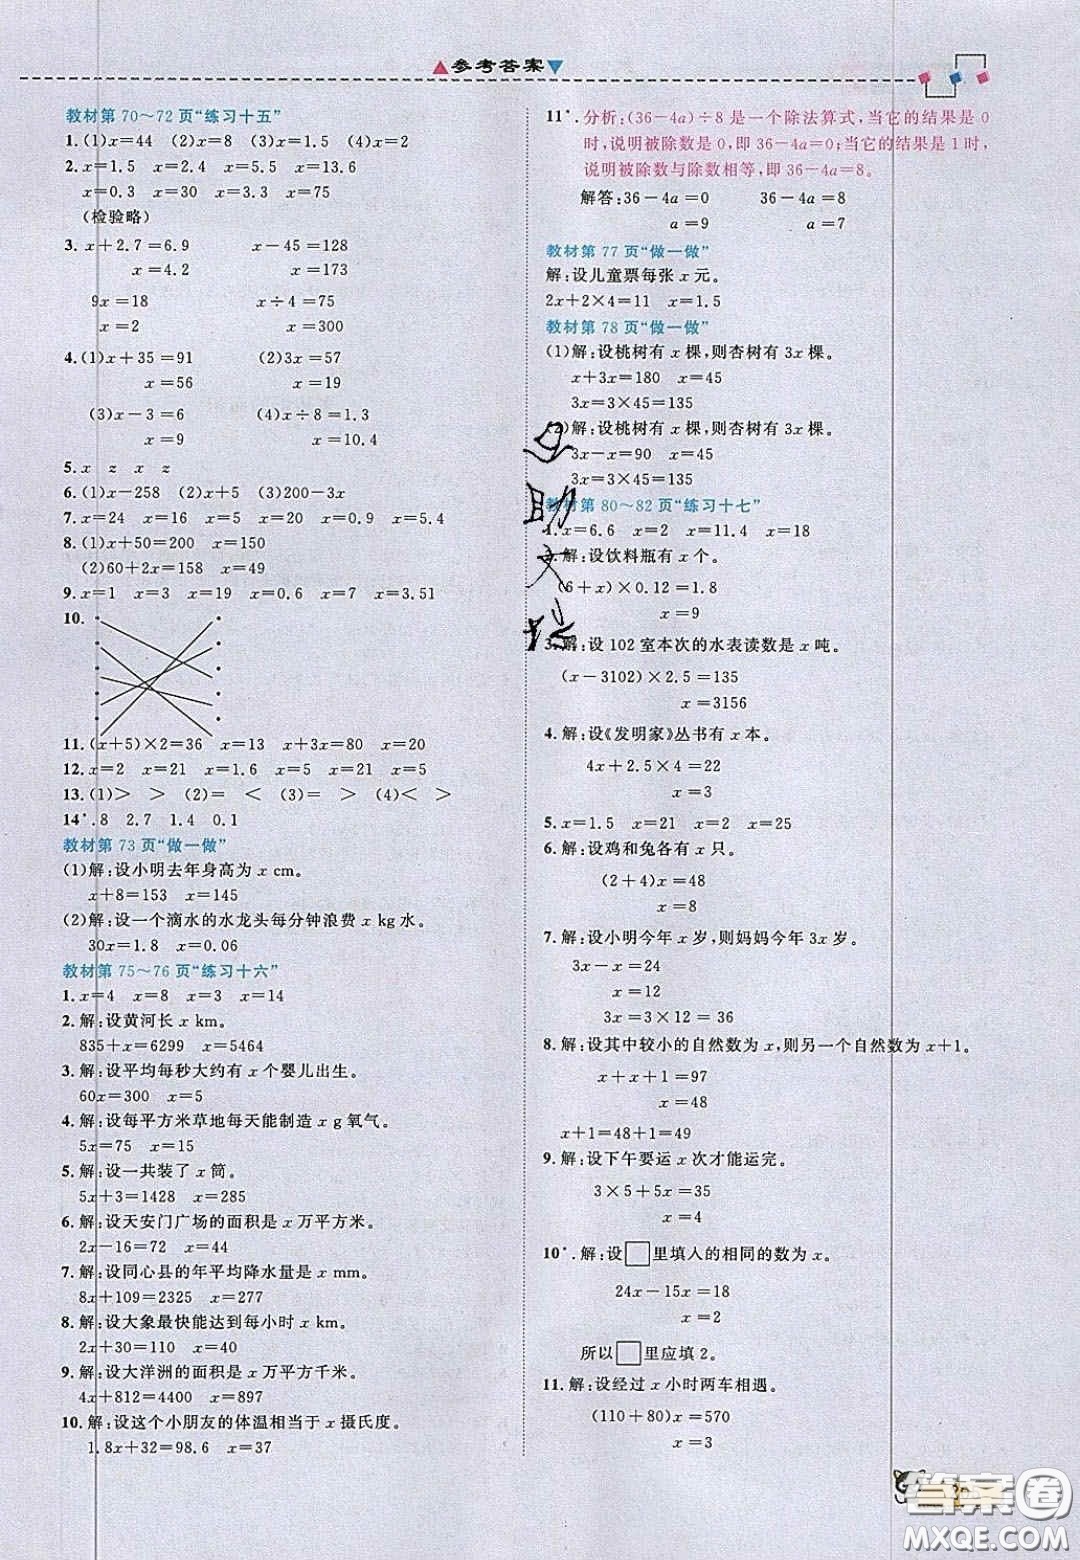 参考答案
教材第70～72页“练习十五”
1.(1)x=44 (2)x=8 (3)x=1.5 (4)x=2
2.x=1.5 x=2.4 x=5.5 x=13.6
x=0.3 x=30 x=3.3 x=75
(检验略)
3.x+2.7=6.9 x-45=128
x=4.2 x=173
9x=18 x÷4=75
x=2 x=300
4.(1)x+35=91 (2)3x=57
x=56 x=19
(3)x-3=6 (4)x÷8=1.3
x=9 x=10.4
5.x z x z
6.(1)x-258 (2)x+5 (3)200-3x
7.x=24 x=16 x=5 x=9 x=5.4
8.(1)x+50=200 x=150
(2)60+2x=158 x=49
9.x=1 x=3 x=19 x=0.6 x=7 x=3.51
10.
11.(x+5)×2=36 x=13 x+3x=80 x=20
12.x=2 x=21 x=1.6 x=5 x=21
13.(1)> > (2)= < (3)= > (4)< >
14*.8 2.7 1.4 0.1
教材第73页“做一做”
(1)解:设小明去年身高为x cm。
x+8=153 x=145
(2)解:设一个滴水的水龙头每分钟浪费x kg水。
30x=1.8 x=0.06
教材第75～76页“练习十六”
1.x=4 x=8 x=3 x=14
2.解:设黄河长x km。
835+x=6299 x=5464
3.解:设平均每秒大约有x个婴儿出生。
60x=300 x=5
4.解:设每平方米草地每天能制造x g氧气。
5x=75 x=15
5.解:设一共装了x筒。
5x+3=1428 x=285
6.解:设天安门广场的面积是x万平方米。
2x-16=72 x=44
7.解:设同心县的年平均降水量是x mm。
8x+109=2325 x=277
8.解:设大象最快能达到每小时x km。
2x+30=110 x=40
9.解:设大洋洲的面积是x万平方千米。
4x+812=4400 x=897
10.解:设这个小朋友的体温相当于x摄氏度。
1.8x+32=98.6 x=37
11*.分析:(36-4a)÷8是一个除法算式,当它的结果是0
时,说明被除数是0,即36-4a=0;当它的结果是1时,
说明被除数与除数相等,即36-4a=8。
解答:36-4a=0 36-4a=8
a=9 a=7
教材第77页“做一做”
解:设儿童票每张x元。
2x+2×4=11 x=1.5
教材第78页“做一做”
(1)解:设桃树有x棵,则杏树有3x棵。
x+3x=180 x=45
3x=3×45=135
(2)解:设桃树有x棵,则杏树有3x棵。
3x-x=90 x=45
3x=3×45=135
教材第80～82页“练习十七”
1.x=6.6 x=2 x=11.4 x=18
2.解:设饮料瓶有x个。
(6+x)×0.12=1.8
x=9
3.解:设102室本次的水表读数是x吨。
(x-3102)×2.5=135
x=3156
4.解:设《发明家》丛书有x本。
4x+2.5×4=22
x=3
5.x=1.5 x=21 x=2 x=25
6.解:设鸡和兔各有x只。
(2+4)x=48
x=8
7.解:设小明今年x岁,则妈妈今年3x岁。
3x-x=24
x=12
3x=3×12=36
8.解:设其中较小的自然数为x,则另一个自然数为x+1。
x+x+1=97
x=48
x+1=48+1=49
9.解:设下午要运x次才能运完。
3×5+5x=35
x=4
10*.解:设□里填入的相同的数为x。
24x-15x=18
x=2
所以□里应填2。
11.解:设经过x小时两车相遇。
(110+80)x=570
x=3
答案卷
MXQE.COM